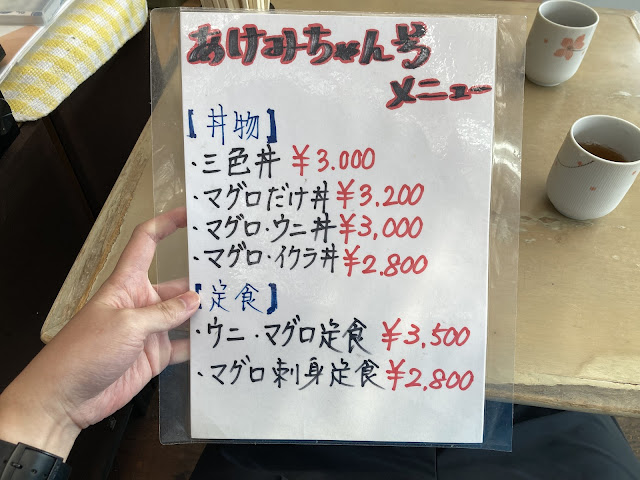 あけみちゃん号
メニュー
【丼物】
・三色丼 ¥3.000
・マグロだけ丼 ¥3,200
・マグロ・ウニ丼 ¥3,000
・マグロ・イクラ丼 ¥2.800
【定食】
・ウニ・マグロ定食 ¥3,500
・マグロ刺身定食 ¥2,800